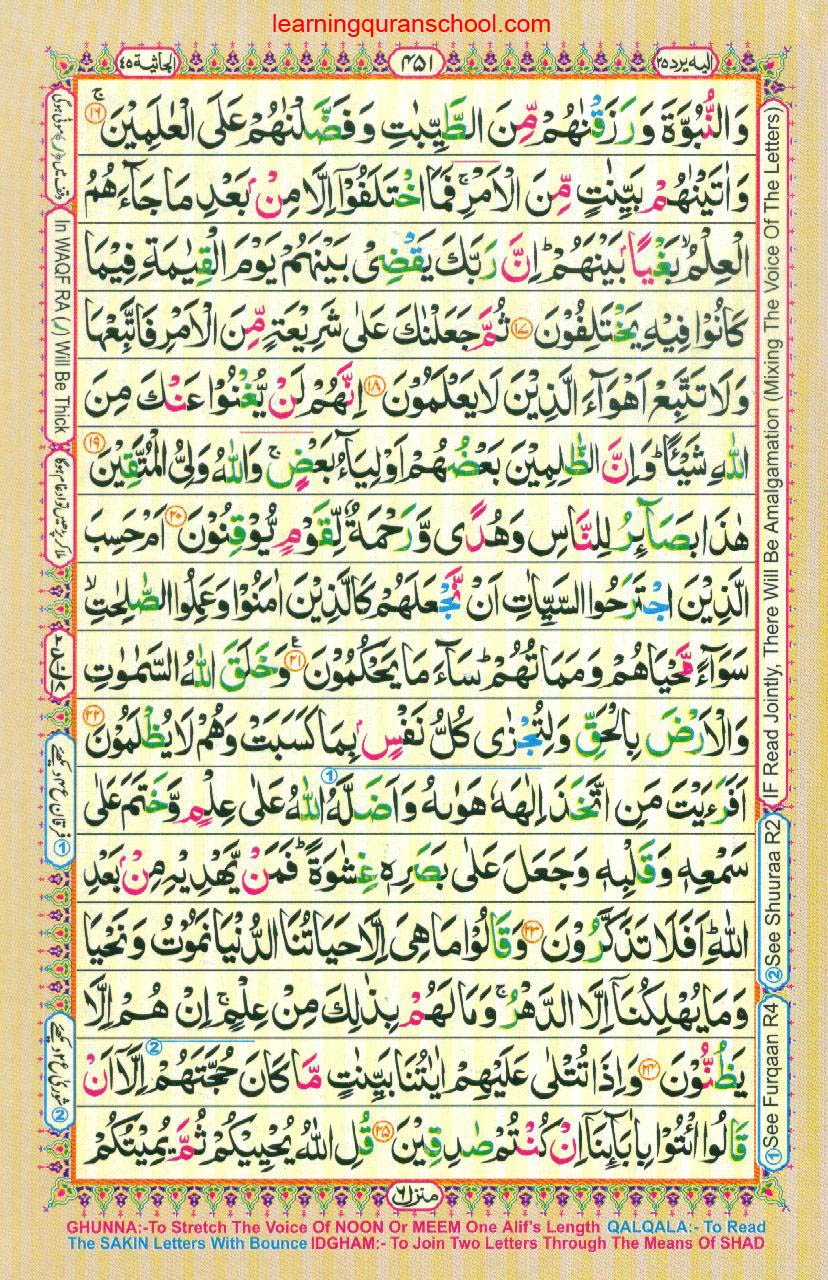 learningquranschool.com
الجاثية ٤٥
٤٥١
اليه يرد ٢٥
وَالنُّبُوَّةَ وَرَزَقْنٰهُمْ مِّنَ الطَّيِّبٰتِ وَفَضَّلْنٰهُمْ عَلَى الْعٰلَمِيْنَ ۚ ١٦
وَاٰتَيْنٰهُمْ بَيِّنٰتٍ مِّنَ الْاَمْرِ ۚ فَمَا اخْتَلَفُوْۤا اِلَّا مِنْۢ بَعْدِ مَا جَآءَهُمُ
الْعِلْمُ ۙ بَغْيًاۢ بَيْنَهُمْ ؕ اِنَّ رَبَّكَ يَقْضِىْ بَيْنَهُمْ يَوْمَ الْقِيٰمَةِ فِيْمَا
كَانُوْا فِيْهِ يَخْتَلِفُوْنَ ١٧ ثُمَّ جَعَلْنٰكَ عَلٰى شَرِيْعَةٍ مِّنَ الْاَمْرِ فَاتَّبِعْهَا
وَلَا تَتَّبِعْ اَهْوَآءَ الَّذِيْنَ لَا يَعْلَمُوْنَ ١٨ اِنَّهُمْ لَنْ يُّغْنُوْا عَنْكَ مِنَ
اللّٰهِ شَيْـًٔا ؕ وَاِنَّ الظّٰلِمِيْنَ بَعْضُهُمْ اَوْلِيَآءُ بَعْضٍ ۚ وَاللّٰهُ وَلِىُّ الْمُتَّقِيْنَ ١٩
هٰذَا بَصَآئِرُ لِلنَّاسِ وَهُدًى وَّرَحْمَةٌ لِّقَوْمٍ يُّوْقِنُوْنَ ٢٠ اَمْ حَسِبَ
الَّذِيْنَ اجْتَرَحُوا السَّيِّاٰتِ اَنْ نَّجْعَلَهُمْ كَالَّذِيْنَ اٰمَنُوْا وَعَمِلُوا الصّٰلِحٰتِ ۙ
سَوَآءً مَّحْيَاهُمْ وَمَمَاتُهُمْ ؕ سَآءَ مَا يَحْكُمُوْنَ ٢١ ع وَخَلَقَ اللّٰهُ السَّمٰوٰتِ
وَالْاَرْضَ بِالْحَقِّ وَلِتُجْزٰى كُلُّ نَفْسٍۢ بِمَا كَسَبَتْ وَهُمْ لَا يُظْلَمُوْنَ ٢٢
اَفَرَءَيْتَ مَنِ اتَّخَذَ اِلٰهَهٗ هَوٰىهُ وَاَضَلَّهُ اللّٰهُ عَلٰى عِلْمٍ وَّخَتَمَ عَلٰى
سَمْعِهٖ وَقَلْبِهٖ وَجَعَلَ عَلٰى بَصَرِهٖ غِشٰوَةً ؕ فَمَنْ يَّهْدِيْهِ مِنْۢ بَعْدِ
اللّٰهِ ؕ اَفَلَا تَذَكَّرُوْنَ ٢٣ وَقَالُوْا مَا هِىَ اِلَّا حَيَاتُنَا الدُّنْيَا نَمُوْتُ وَنَحْيَا
وَمَا يُهْلِكُنَاۤ اِلَّا الدَّهْرُ ۚ وَمَا لَهُمْ بِذٰلِكَ مِنْ عِلْمٍ ۚ اِنْ هُمْ اِلَّا
يَظُنُّوْنَ ٢٤ وَاِذَا تُتْلٰى عَلَيْهِمْ اٰيٰتُنَا بَيِّنٰتٍ مَّا كَانَ حُجَّتَهُمْ اِلَّاۤ اَنْ
قَالُوا ائْتُوْا بِاٰبَآئِنَاۤ اِنْ كُنْتُمْ صٰدِقِيْنَ ٢٥ قُلِ اللّٰهُ يُحْيِيْكُمْ ثُمَّ يُمِيْتُكُمْ
In WAQF RA (ر) Will Be Thick
IF Read Jointly, There Will Be Amalgamation (Mixing The Voice Of The Letters)
② See Shuuraa R2
① See Furqaan R4
منزل ٦
GHUNNA:-To Stretch The Voice Of NOON Or MEEM One Alif's Length QALQALA:- To Read
The SAKIN Letters With Bounce IDGHAM:- To Join Two Letters Through The Means Of SHAD